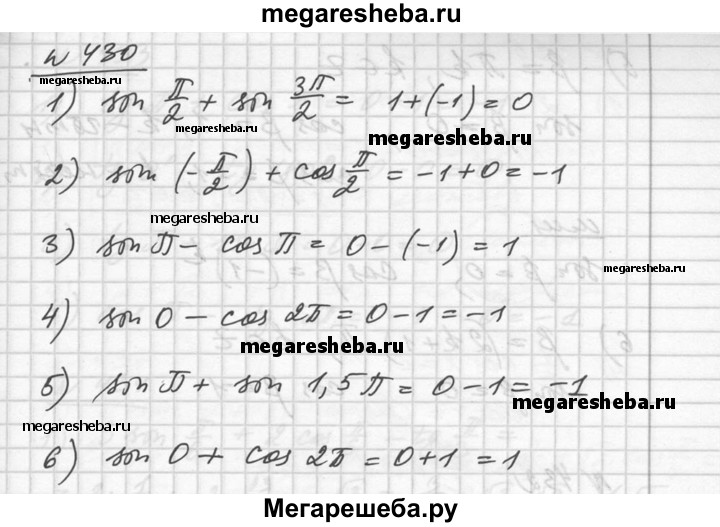 megaresheba.ru
№ 430
megaresheba.ru
1) sin π/2 + sin 3π/2 = 1+(-1) = 0
megaresheba.ru
megaresheba.ru
2) sin (-π/2) + cos π/2 = -1+0 = -1
megaresheba.ru
3) sin π - cos π = 0-(-1) = 1
megaresheba.ru
4) sin 0 - cos 2π = 0-1 = -1
megaresheba.ru
5) sin π + sin 1,5π = 0-1 = -1
megaresheba.ru
megaresheba.ru
6) sin 0 + cos 2π = 0+1 = 1
Мегарешеба.ру